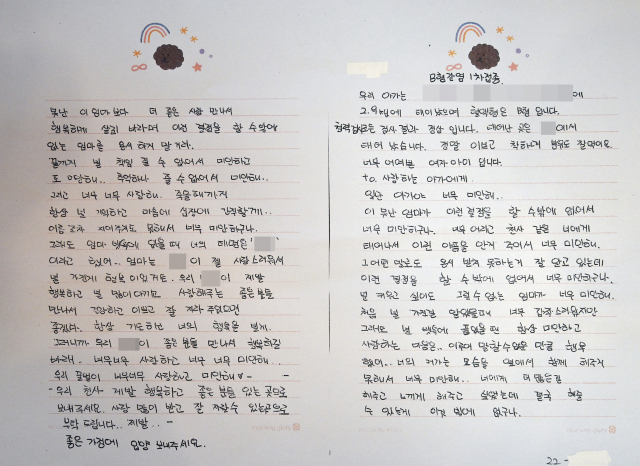 못난 이 엄마 보다 더 좋은 사람 만나서
행복하게 살길 바라며 이런 결정을 할 수 밖에
없는 엄마를 용서 하지 말거라.
끝까지 널 책임 질 수 없어서 미안하고
또 미안해.. 추억하나 줄 수 없어서 미안해..
그리고 너무 너무 사랑해. 죽을때까지
항상 널 기억하고 마음에 심장에 간직할게..
이름 조차 지어주지도 못해서 너무 미안하구나.
그래도 엄마 뱃속에 있을 때 너의 태명은'
이라고 했어.. 엄마는 이 젤 사랑스러워서
널 가진게 행복이었거든. 우리 이 제발
행복하고 널 많이 아끼고 사랑해주는 좋은분들
만나서 건강하고 이쁘고 잘 자라 주었으면
좋겠다. 항상 기도하며 너의 행복을 빌게.
그러니까 우리 이 좋은 분들 만나서 행복하길
바래.. 너무너무 사랑하고 너무 너무 미안해...
우리 이 너무너무 사랑하고 미안해
- 우리 천사 제발 행복하고 좋은 분들 있는 곳으로
보내주세요. 사랑 많이 받고 잘 자랄수 있는곳으로
부탁 드립니다.. 제발.. -
좋은 가정에 입양 보내주세요.
B형간염 1차접종.
우리 아가는 에
2.9kg에 태어났으며 혈액형은 B형 입니다.
검사 결과 정상 입니다. 태어난 곳은 에서
태어 났습니다. 정말 이쁘고 착하게 밤에도 잘먹어요.
너무 어여쁜 여자 아이 입니다.
to. 사랑하는 아가에게.
일단 아가야 너무 미안해..
이 못난 엄마가 이런 결정을 할 수밖에 없어서
너무 미안하구나. 너무 어리고 천사 같은 너에게
태어나서 이런 아픔을 안겨 주어서 너무 미안해.
그 어떤 말로도 용서 받지 못하는거 잘 알고 있는데
이런 결정을 할 수 밖에 없어서 너무 미안하구나.
널 키우고 싶어도 그럴 수 없는 엄마가 너무 미안해.
처음 널 가진걸 알았을때 너무 갑작스러웠지만
그래도 널 뱃속에 품었을 땐 항상 미안하고
사랑하는 마음도.. 이루어 말할 수 없을 만큼 행복
했어.. 너의 커가는 모습을 옆에서 함께 해주지
못해서 너무 미안해.. 너에게 더 많은걸
해주고 느끼게 해주고 싶었는데 결국 해줄
수 있는게 이것 밖에 없구나.
22 -